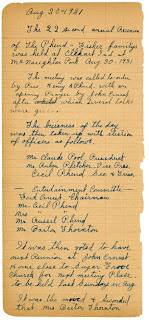 Aug 30-1931
The 22 second annual Reunion
of the Phend - Fisher families
was held at Elkhart Ind at
McNaughton Park Aug 30-1931
The meeting was called to order
by Pres. & Phend with an
opening Prayer by John Ernest
after which several talks
were given.
The business of the day
was then taken up with election
of officers as follows.
Mr. Claude Pool President
Mr. Pletcher, Vice Pres.
Cecil Phend Sec & Treas.
Entertainment Committee -
Fred Ernest, Chairman
Mr. Cecil Phend
Mrs " "
Mr Russel Phend
Mr Burton Thornton
It was then voted to have
next Reunion at John Ernest
home close to Sugar Grove
Church for next meeting Place
to be held last Sunday in Aug.
It was the moved & Seconded
that Mrs Burton Thornton